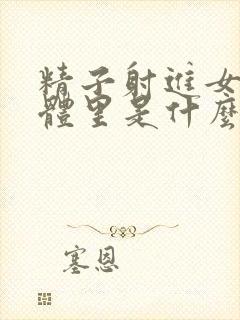 精子射进女
體里是什麼
塞恩